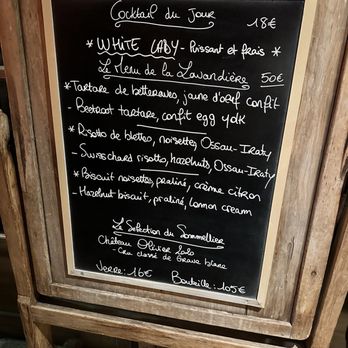 Cocktail du Jour 18€
* WHITE LADY - Puissant et frais *
Le Menu de la Lavandière 50€
* Tartare de betteraves, jaune d'œuf confit
- Beetroot tartare, confit egg yolk
* Risotto de blettes, noisettes, Ossau-Iraty
- Swisschard risotto, hazelnuts, Ossau-Iraty
* Biscuit noisettes, praliné, crème citron
- Hazelnut biscuit, praliné, lemon cream
La Sélection du Sommellier
Château Olivier 2020
- Cru classé de Grave blanc
Verre: 16€ Bouteille: 105€